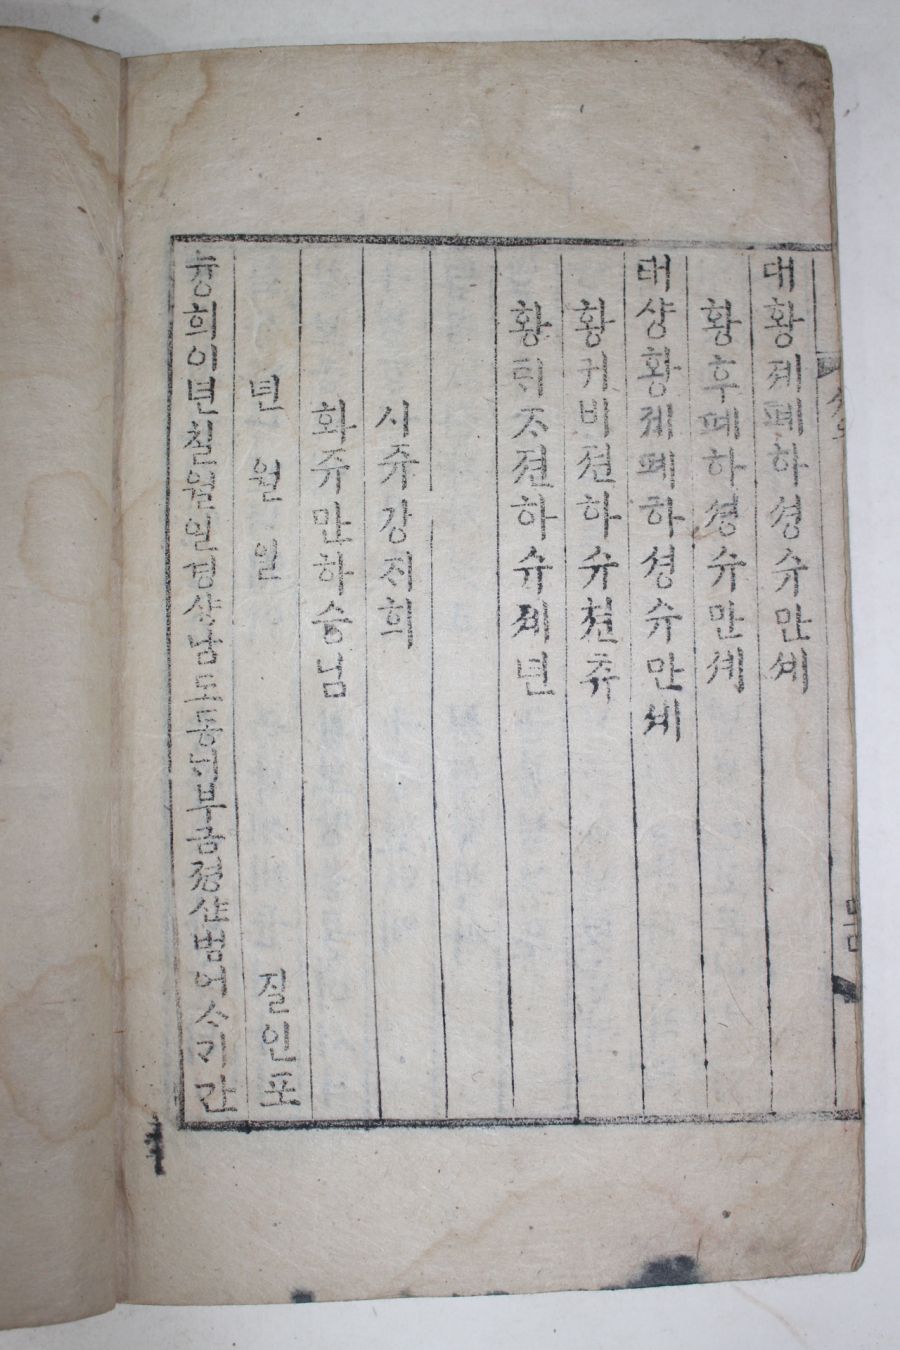 대황졔폐하셩슈만셰
황후폐하셩슈만셰
태샹황졔폐하셩슈만셰
황귀비젼하슈쳔츄
황틱ᄌᆞ젼하슈졔년
시쥬강지희
화쥬만하승님
년 월 일 질인포
늉희이년칠월일경샹남도동ᄂᆡ부금졍샨범어ᄉᆞ기간